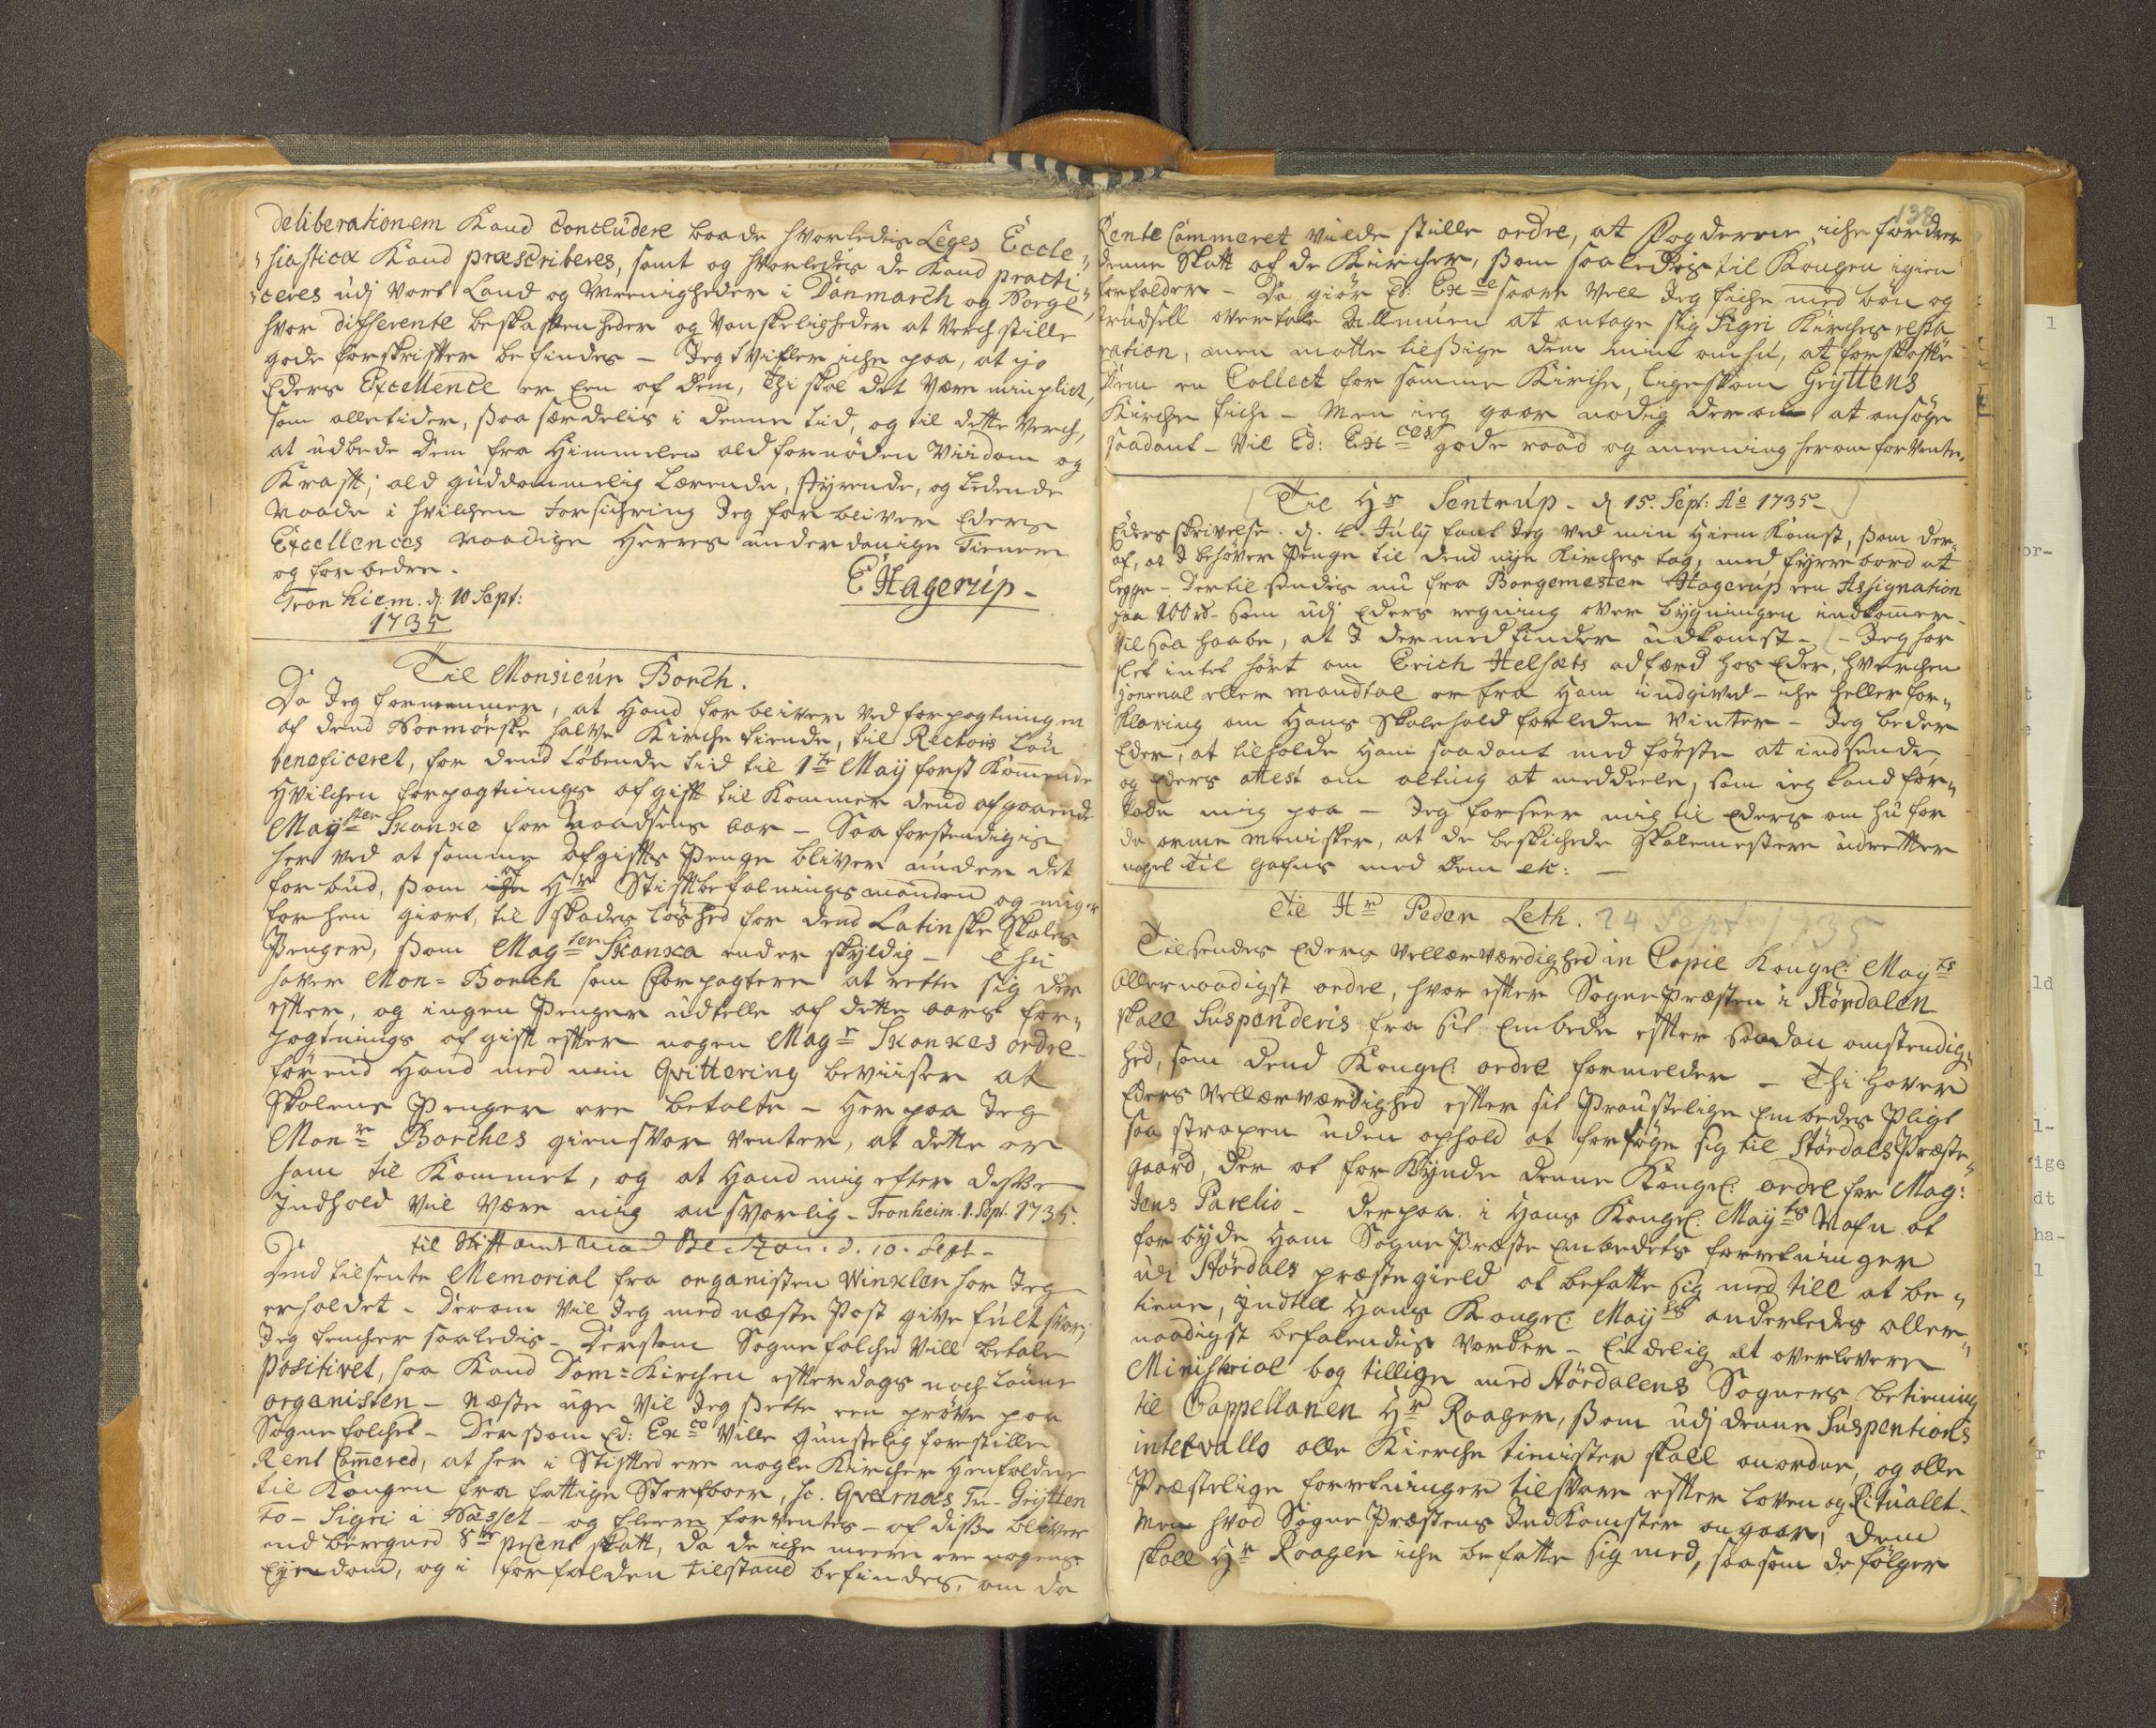 deliberationem kand concludere baade hvorledis Leges Eccle„
„siasticæ kand præscriberes, samt og hvorledis de kand practi„
„ceres udj vort Land og Meenigheder i Danmarch og Norge,
hvor differente beskaffenheder og vanskeligheder at verchstille
gode forskrifter befindes – Jeg tvifler iche paa, at jo
Eders Excellence er een af dem, Thi skal det være min plict,
som alletider, saa særdelis i denne tid, og til dette Verch,
at udbede dem fra Himmelen ald fornøden Viisdom og
Krafft; ald guddommelig lærende, styrende, og ledende
Naade i hvilchen forsichring Jeg forbliver Eders
Excellences naadige Herres underdanige Tienere
og forbedere.
E Hagerup –
Tronhiem. d. 10 Sept:
1735
Til Monsieur Borch.
Da Jeg fornemmer, at Hand forbliver ved forpagtningen
af dend Normørske halve Kirche tiende, til Rectors Løn
beneficeret, for dend løbende tid til 1te Maij først kommende
Hvilchen forpagtnings afgifft til kommer dend afgaaende
Magster Skanke for Naadsens aar – Saa forstendigis
her ved at samme Afgiffts Penge bliver under det
forbud, som Hr Stiftbefalningsmanden og mig er
forhen giort, til skadesløshed for dend Latinske Skoles
Penger, som Magster Skanka ender skyldig – Thi
haver Mon= Borch som Forpagtere at rette sig der
effter, og ingen Penger udtelle af dette aars for„
pagtnings afgifft effter nogen Magr Skankes ordre
førend Hand med min Qvittering beviiser at
Skolens Penger ere betalte – Her paa Jeg
Monr Borches giensvar venter, at dette er
ham til Kommet, og at Hand mig efter disse
Indhold vil være mig ansvarlig – Tronheim. 1. Sept. 1735.
til Stiftamtmand Beltzau. d. 10. Sept –
Dend tilsente Memorial fra organisten Winkler har Jeg
erholdet – Derom vil Jeg med næste Post give fult svar,
Jeg tencher saaledis – Dersom Sognefolchet vill betale
Positivet, saa kand Dom=Kirchen effterdags noch lønne
organisten – næste uge vil Jeg sette een prøve paa
Sognefolchet – Dersom Ed: Exce ville gunstelig forestille
Rent Cammered, at her i Stifftet ere nogle Kircher Henfaldne
til Kongen fra fattige Sterfboer, sc. Qvernæs, Tr– Grytten
To– Sigri i Næsset – og fleere forventes – af disse bliver
end beregned 8te prCent skatt, da de iche meere ere nogens
Eyendom, og i forfalden tilstand befindes, om da
138
Rente Cammeret vilde stille ordre, at Fogderne iche fordrer
denne Skatt af de Kircher, som saaledis til Kongen igien
forfalder – Da giør Ed: Exce saare vell Jeg fiche med bøn og
trudsell overtale Allmuen at antage sig Sigri Kirches repa
ration, men motte tilsige dem min omhu, at forskaffe
dem en Collect for samme Kirche, ligesom Gryttens
Kirche fiche – Men ieg gaar nødig der an at ansøge
saadant – Vil Ed: Exces gode raad og meening herom forvente.
Til Hr Sentrup – d. 15. Sept: Ao 1735 –
Eders skrivelse d. 4. July fant Jeg ved min Hiemkomst, som der„
af, at I behøver Penge til dend nye Kirches tag, med fyrrebord at
legge – Dertil sendis nu fra Borgemester Hagerup een Assignation
paa 100 rd – Som udj Eders regning over bygningen indkommer
vil saa haabe, at I dermed finder udkomst – Jeg har
slet intet hørt om Erich Helsæts adfærd hos Eder, hverchen
jonrnal eller mandtal er fra Ham indgived – iche heller for„
klaring om Hans Skolehold forleden vinter – Jeg beder
Eder, at tilholde Ham saadant med første at indsende,
og Eders attest om alting at meddeele, som ieg kand for„
lade mig paa – Jeg forseer mig til Eders omhu for
de arme menisker, at de beskichede Skolemestere udretter
noget til gafns med dem etc: –
Til Hr Peder Leth. 24 Sept 1735
Tilsendes Eders Vellærværdighed in Copie Kongel: Mayts
allernaadigst ordre, hvor effter SognePræsten i Størdalen
skall Suspenderis fra sit Embede effter saadan omstendig„
hed, som dend Kongel: ordre formelder – Thi haver
Eders Vellærværdighed effter sit Proustelige Embedes Pligt
saa strax uden ophold at forføge sig til StørdalsPræste„
gaard, der at forkynde denne Kongel: ordre for Mag:
Jens Parelio – Derpaa i Hans Kongel: Mayts Nafn at
forbyde Ham SognePræste Embedets forretninger
udi Størdals præstegield at befatte sig med till at be„
tiene, Indtill Hans Kongel: Mayts anderledes aller„
naadigst befalendis vorder – Endelig at overlevere
Ministerial bog tillige med Størdalens Sogners betiening
til Cappellanen Hr Raager, som udj denne Suspentions
intervallo alle Kierche tienister skall anordne, og alle
Præstelige forretninger tilsvare effter loven og Ritualet.
Men hvad SognePræstens IndKomster angaar, dem
skall Hr Raager iche befatte sig med, saasom de følger